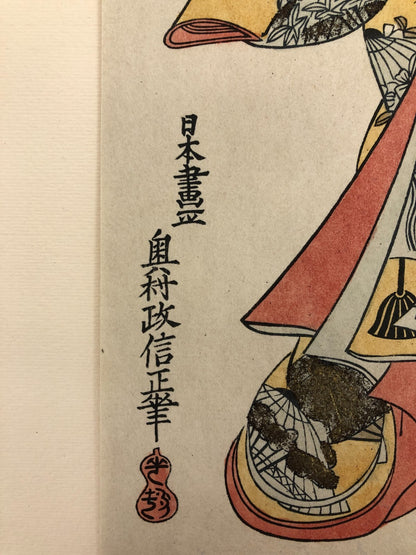 日本畫工
奥村政信正筆